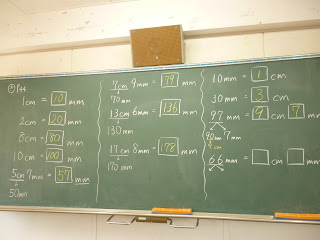 1cm = 10 mm
2cm = 20 mm
8cm = 80 mm
10cm = 100 mm
5cm 7mm = 57 mm
50mm
7cm 9mm = 79 mm
70mm
13cm 6mm = 136 mm
130mm
17cm 8mm = 178 mm
170mm
10mm = 1 cm
30mm = 3 cm
97mm = 9 cm 7 mm
90mm 7mm
9cm
66mm = cm mm